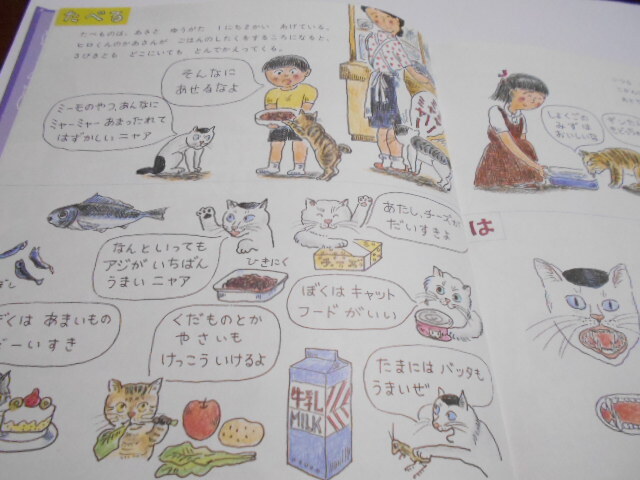 たべる
たべものは、あさと ゆうがた 1にち2かい あげている。
ヒロくんのかあさんが ごはんのしたくをするころになると、
2ひきとも どこにいても とんでかえってくる。
そんなに
あせるなよ
ミーモのやつ、あんなに
ミャーミャー あまったれて
はずかしい ニャア
しょくごの
みずは
おいしいな
なんといっても
アジが いちばん
うまい ニャア
ひきにく
チーズ
あたし、チーズが
だいすきよ
ぼくは キャット
フードが いい
くは あまいもの
だーいすき
くだものとか
やさいも
けっこう いけるよ
牛乳
MILK
たまには バッタも
うまいぜ
は